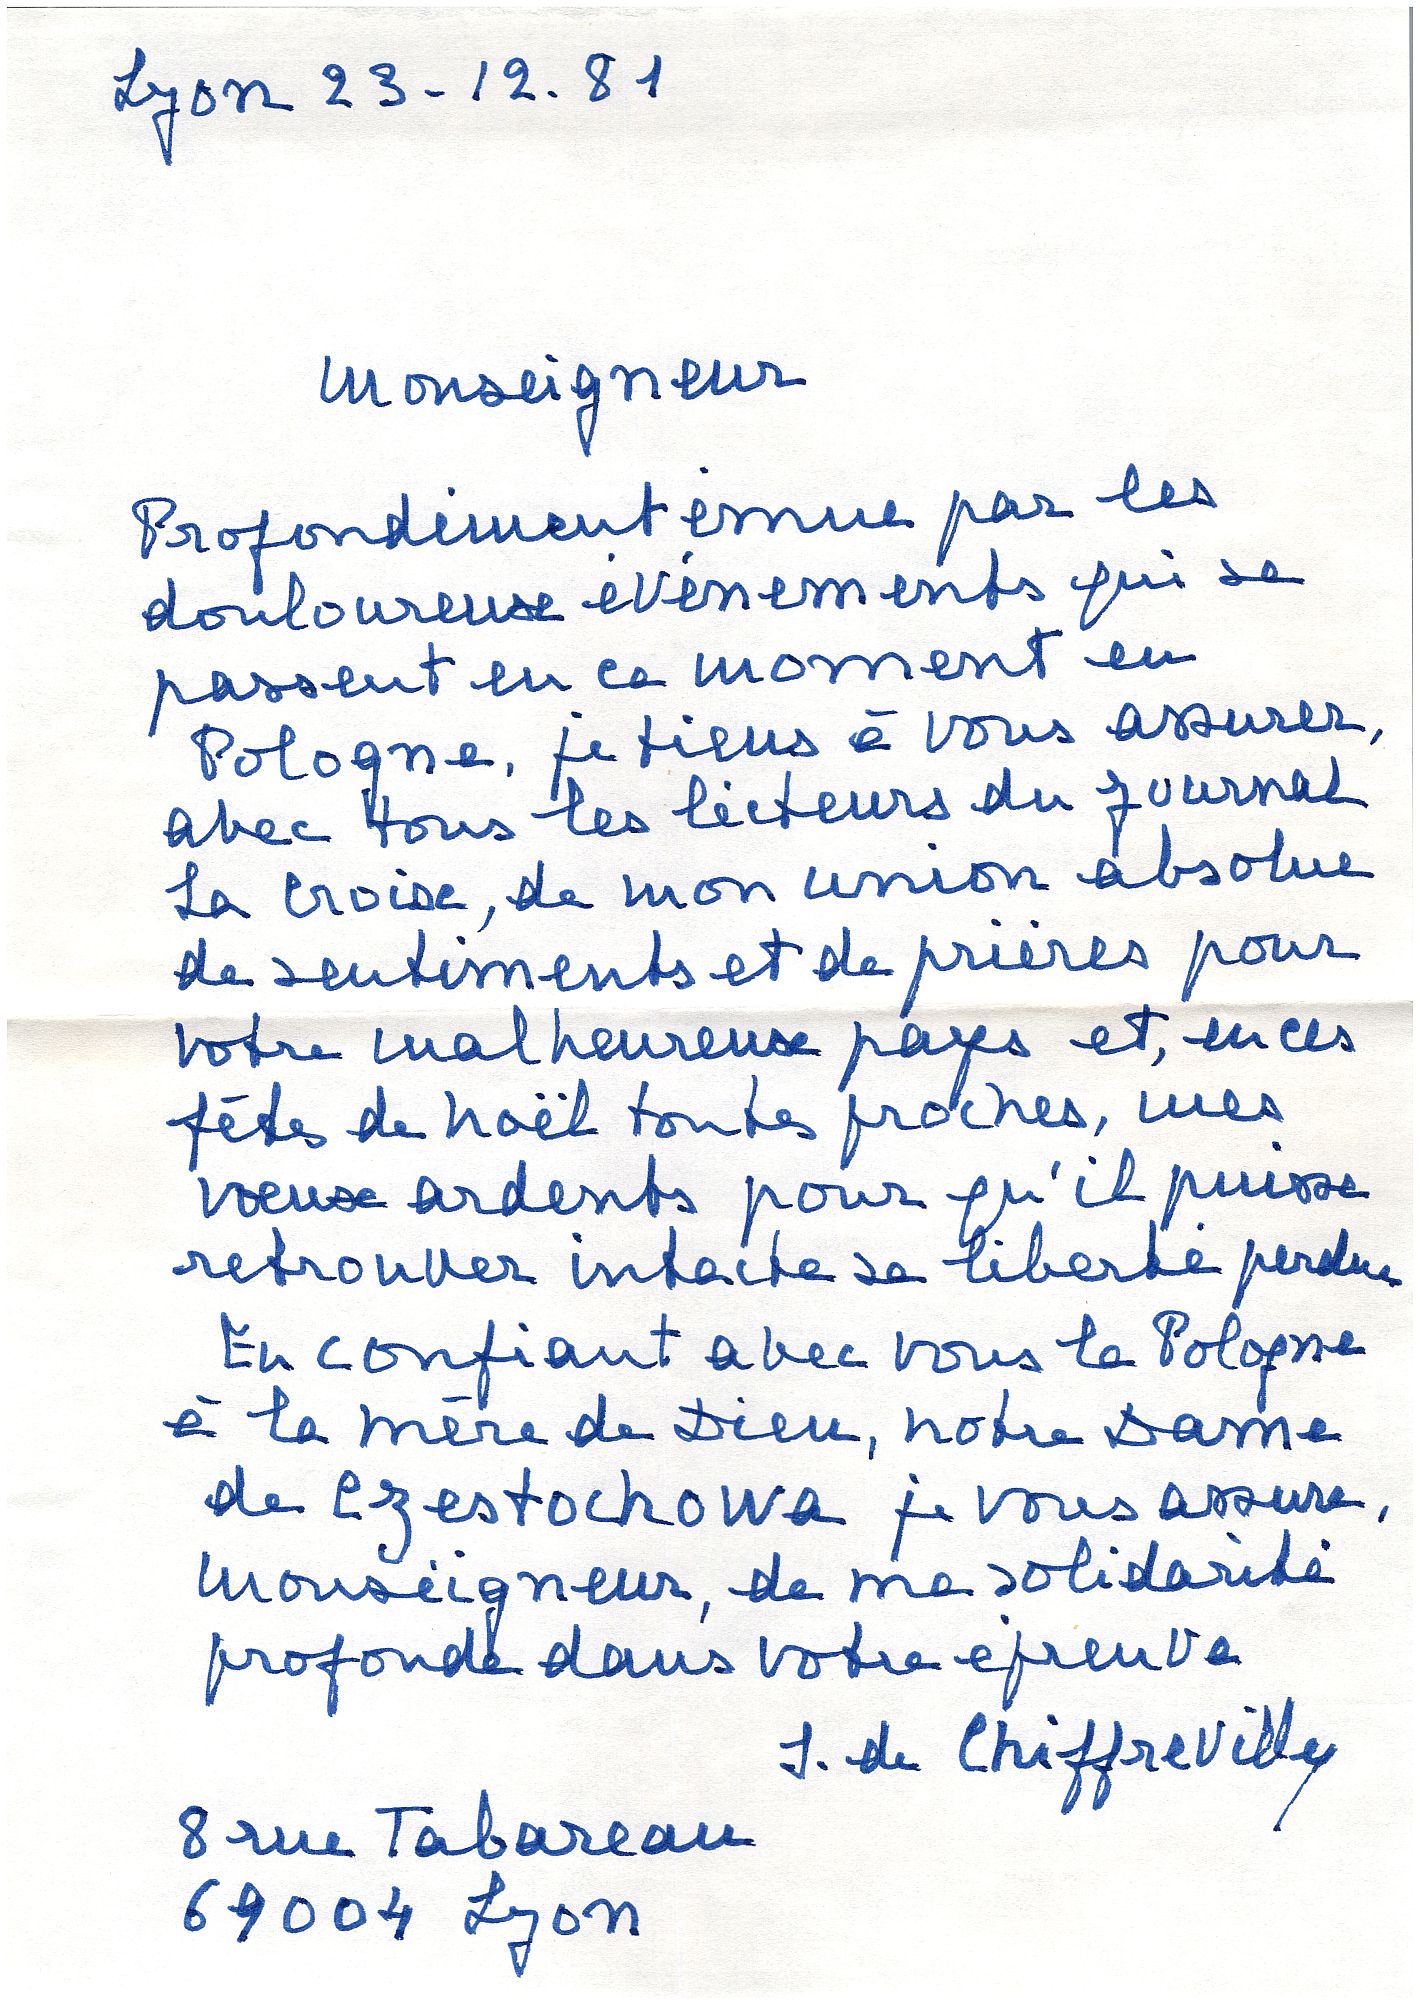 Lyon 23-12.81
Monseigneur
Profondément émue par les
douloureux événements qui se
passent en ce moment en
Pologne, je tiens à vous assurer,
avec tous les lecteurs du journal
La Croix, de mon union absolue
de sentiments et de prières pour
votre malheureux pays et, en ces
fêtes de Noël toutes proches, mes
voeux ardents pour qu'il puisse
retrouver intacte sa liberté perdue
En confiant avec vous la Pologne
à la mère de Dieu, notre Dame
de Czestochowa je vous assure,
Monseigneur, de ma solidarité
profonde dans votre épreuve
J. de Chiffrevilly
8 rue Tabareau
69004 Lyon